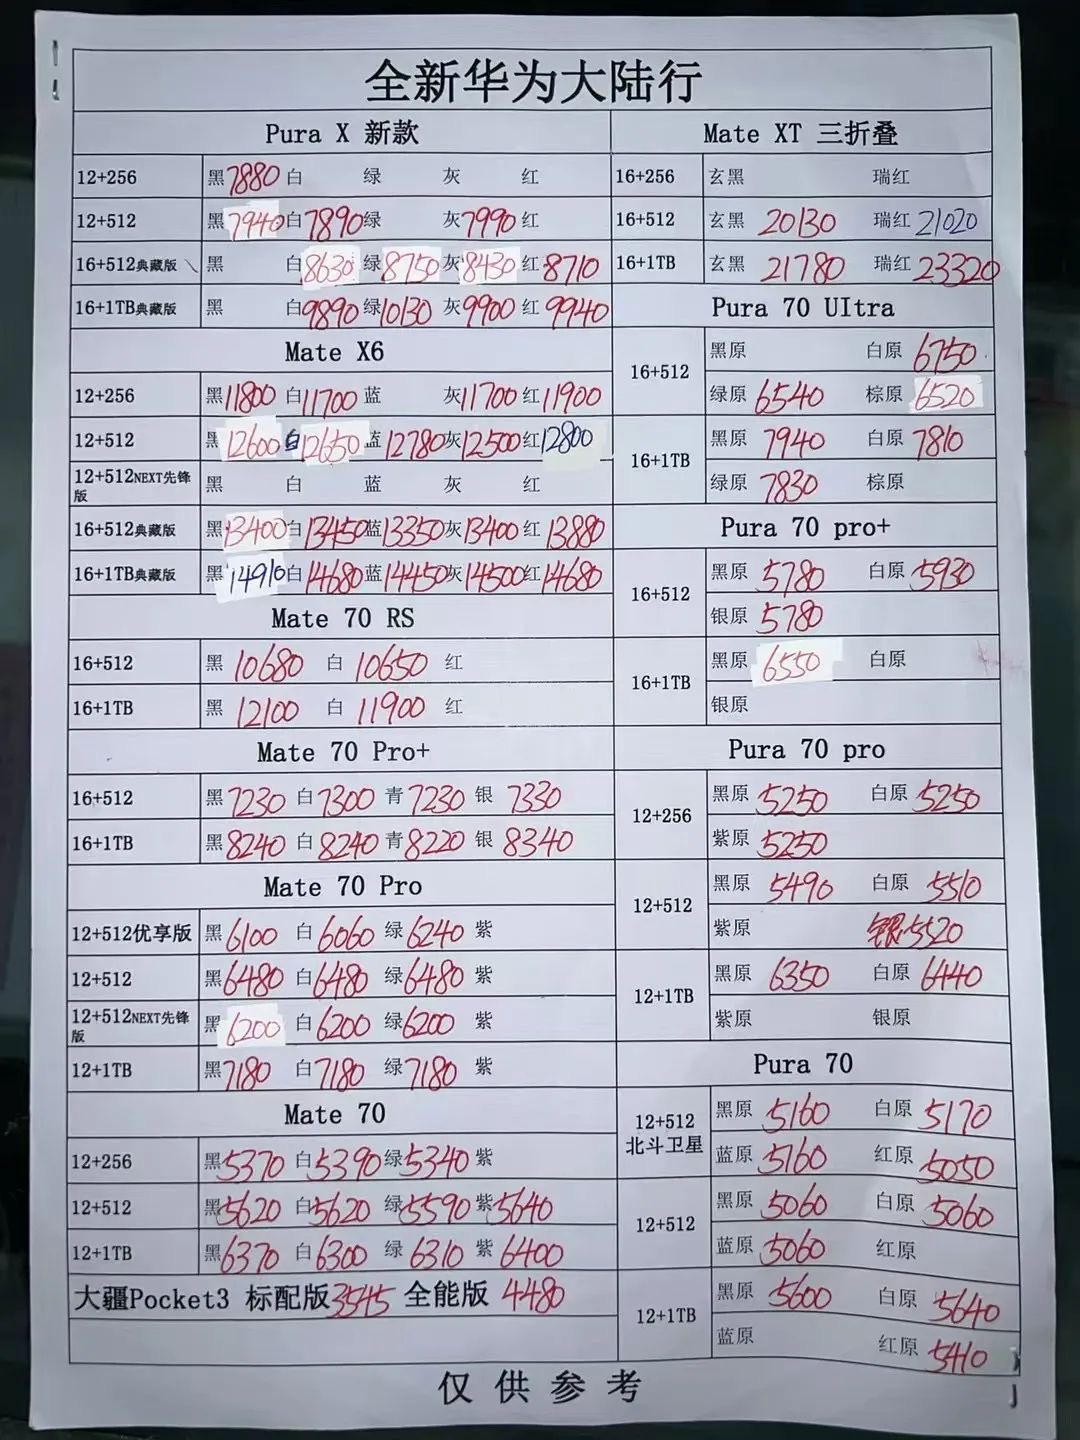 全新华为大陆行
Pura X 新款
12+256 黑7880 白 绿 灰 红
12+512 黑7940 白7890 绿 灰7990 红
16+512典藏版 黑 白8630 绿8750 灰8430 红8710
16+1TB典藏版 黑 白9890 绿10130 灰9900 红9940
Mate X6
12+256 黑11800 白11700 蓝 灰11700 红11900
12+512 黑12600 白12650 蓝12780 灰12500 红12800
12+512NEXT先锋版 黑 白 蓝 灰 红
16+512典藏版 黑13400 白13450 蓝13350 灰13400 红13880
16+1TB典藏版 黑14910 白14680 蓝14450 灰14500 红14680
Mate 70 RS
16+512 黑 10680 白 10650 红
16+1TB 黑 12100 白 11900 红
Mate 70 Pro+
16+512 黑7230 白7300 青7230 银 7330
16+1TB 黑8240 白8240 青8220 银 8340
Mate 70 Pro
12+512优享版 黑6100 白6060 绿6240 紫
12+512 黑6480 白6480 绿6480 紫
12+512NEXT先锋版 黑6200 白6200 绿6200 紫
12+1TB 黑7180 白7180 绿7180 紫
Mate 70
12+256 黑5370 白5390 绿5340 紫
12+512 黑5620 白5620 绿5590 紫5640
12+1TB 黑6370 白6300 绿6310 紫6400
大疆Pocket3 标配版3545 全能版 4480
Mate XT 三折叠
16+256 玄黑 瑞红
16+512 玄黑 20130 瑞红 21020
16+1TB 玄黑 21780 瑞红 23320
Pura 70 UItra
16+512
黑原 白原 6750
绿原 6540 棕原 6520
16+1TB
黑原 7940 白原 7810
绿原 7830 棕原
Pura 70 pro+
16+512
黑原 5780 白原 5930
银原 5780
16+1TB
黑原 6550 白原
银原
Pura 70 pro
12+256
黑原 5250 白原 5250
紫原 5250
12+512
黑原 5490 白原 5510
紫原 银5520
12+1TB
黑原 6350 白原 6440
紫原 银原
Pura 70
12+512
北斗卫星
黑原 5160 白原 5170
蓝原 5160 红原 5050
12+512
黑原 5060 白原 5060
蓝原 5060 红原
12+1TB
黑原 5600 白原 5640
蓝原 红原 5410
仅供参考